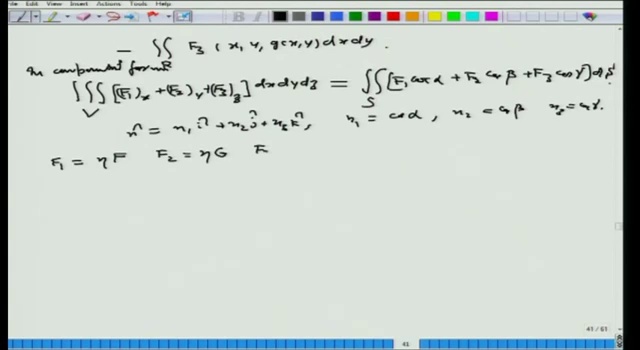 File Edit View Insert Actions Tools Help
− ∬_R F₃ (x, y, g(x,y)) dx dy.
In component form
∭_V [(F₁)_x + (F₂)_y + (F₃)_z] dx dy dz = ∬_S [F₁ cos α + F₂ cos β + F₃ cos γ] dA
n̂ = n₁ î + n₂ ĵ + n₃ k̂, n₁ = cos α, n₂ = cos β n₃ = cos γ.
F₁ = ηF F₂ = ηG F
41 / 61
41